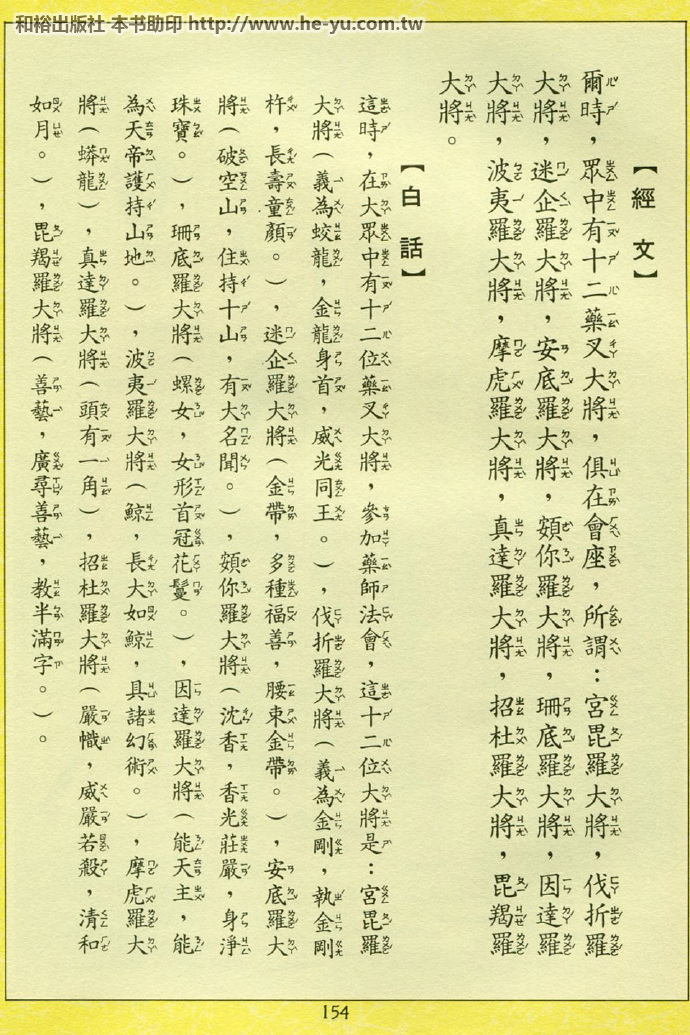 和裕出版社 本书助印 http://www.he-yu.com.tw
【經文】
爾時，眾中有十二藥叉大將，俱在會座，所謂：宮毘羅大將，伐折羅
大將，迷企羅大將，安底羅大將，頞你羅大將，珊底羅大將，因達羅
大將，波夷羅大將，摩虎羅大將，真達羅大將，招杜羅大將，毘羯羅
大將。
【白話】
這時，在大眾中有十二位藥叉大將，參加藥師法會，這十二位大將是：宮毘羅
大將（義為蛟龍，金龍身首，威光同王。），伐折羅大將（義為金剛，執金剛
杵，長壽童顏。），迷企羅大將（金帶，多種福善，腰束金帶。），安底羅大
將（破空山，住持十山，有大名聞。），頞你羅大將（沈香，香光莊嚴，身淨
珠寶。），珊底羅大將（螺女，女形首冠花鬘。），因達羅大將（能天主，能
為天帝護持山地。），波夷羅大將（鯨，長大如鯨，具諸幻術。），摩虎羅大
將（蟒龍），真達羅大將（頭有一角），招杜羅大將（嚴幟，威嚴若殺，清和
如月。），毘羯羅大將（善藝，廣尋善藝，教半滿字。）。
154